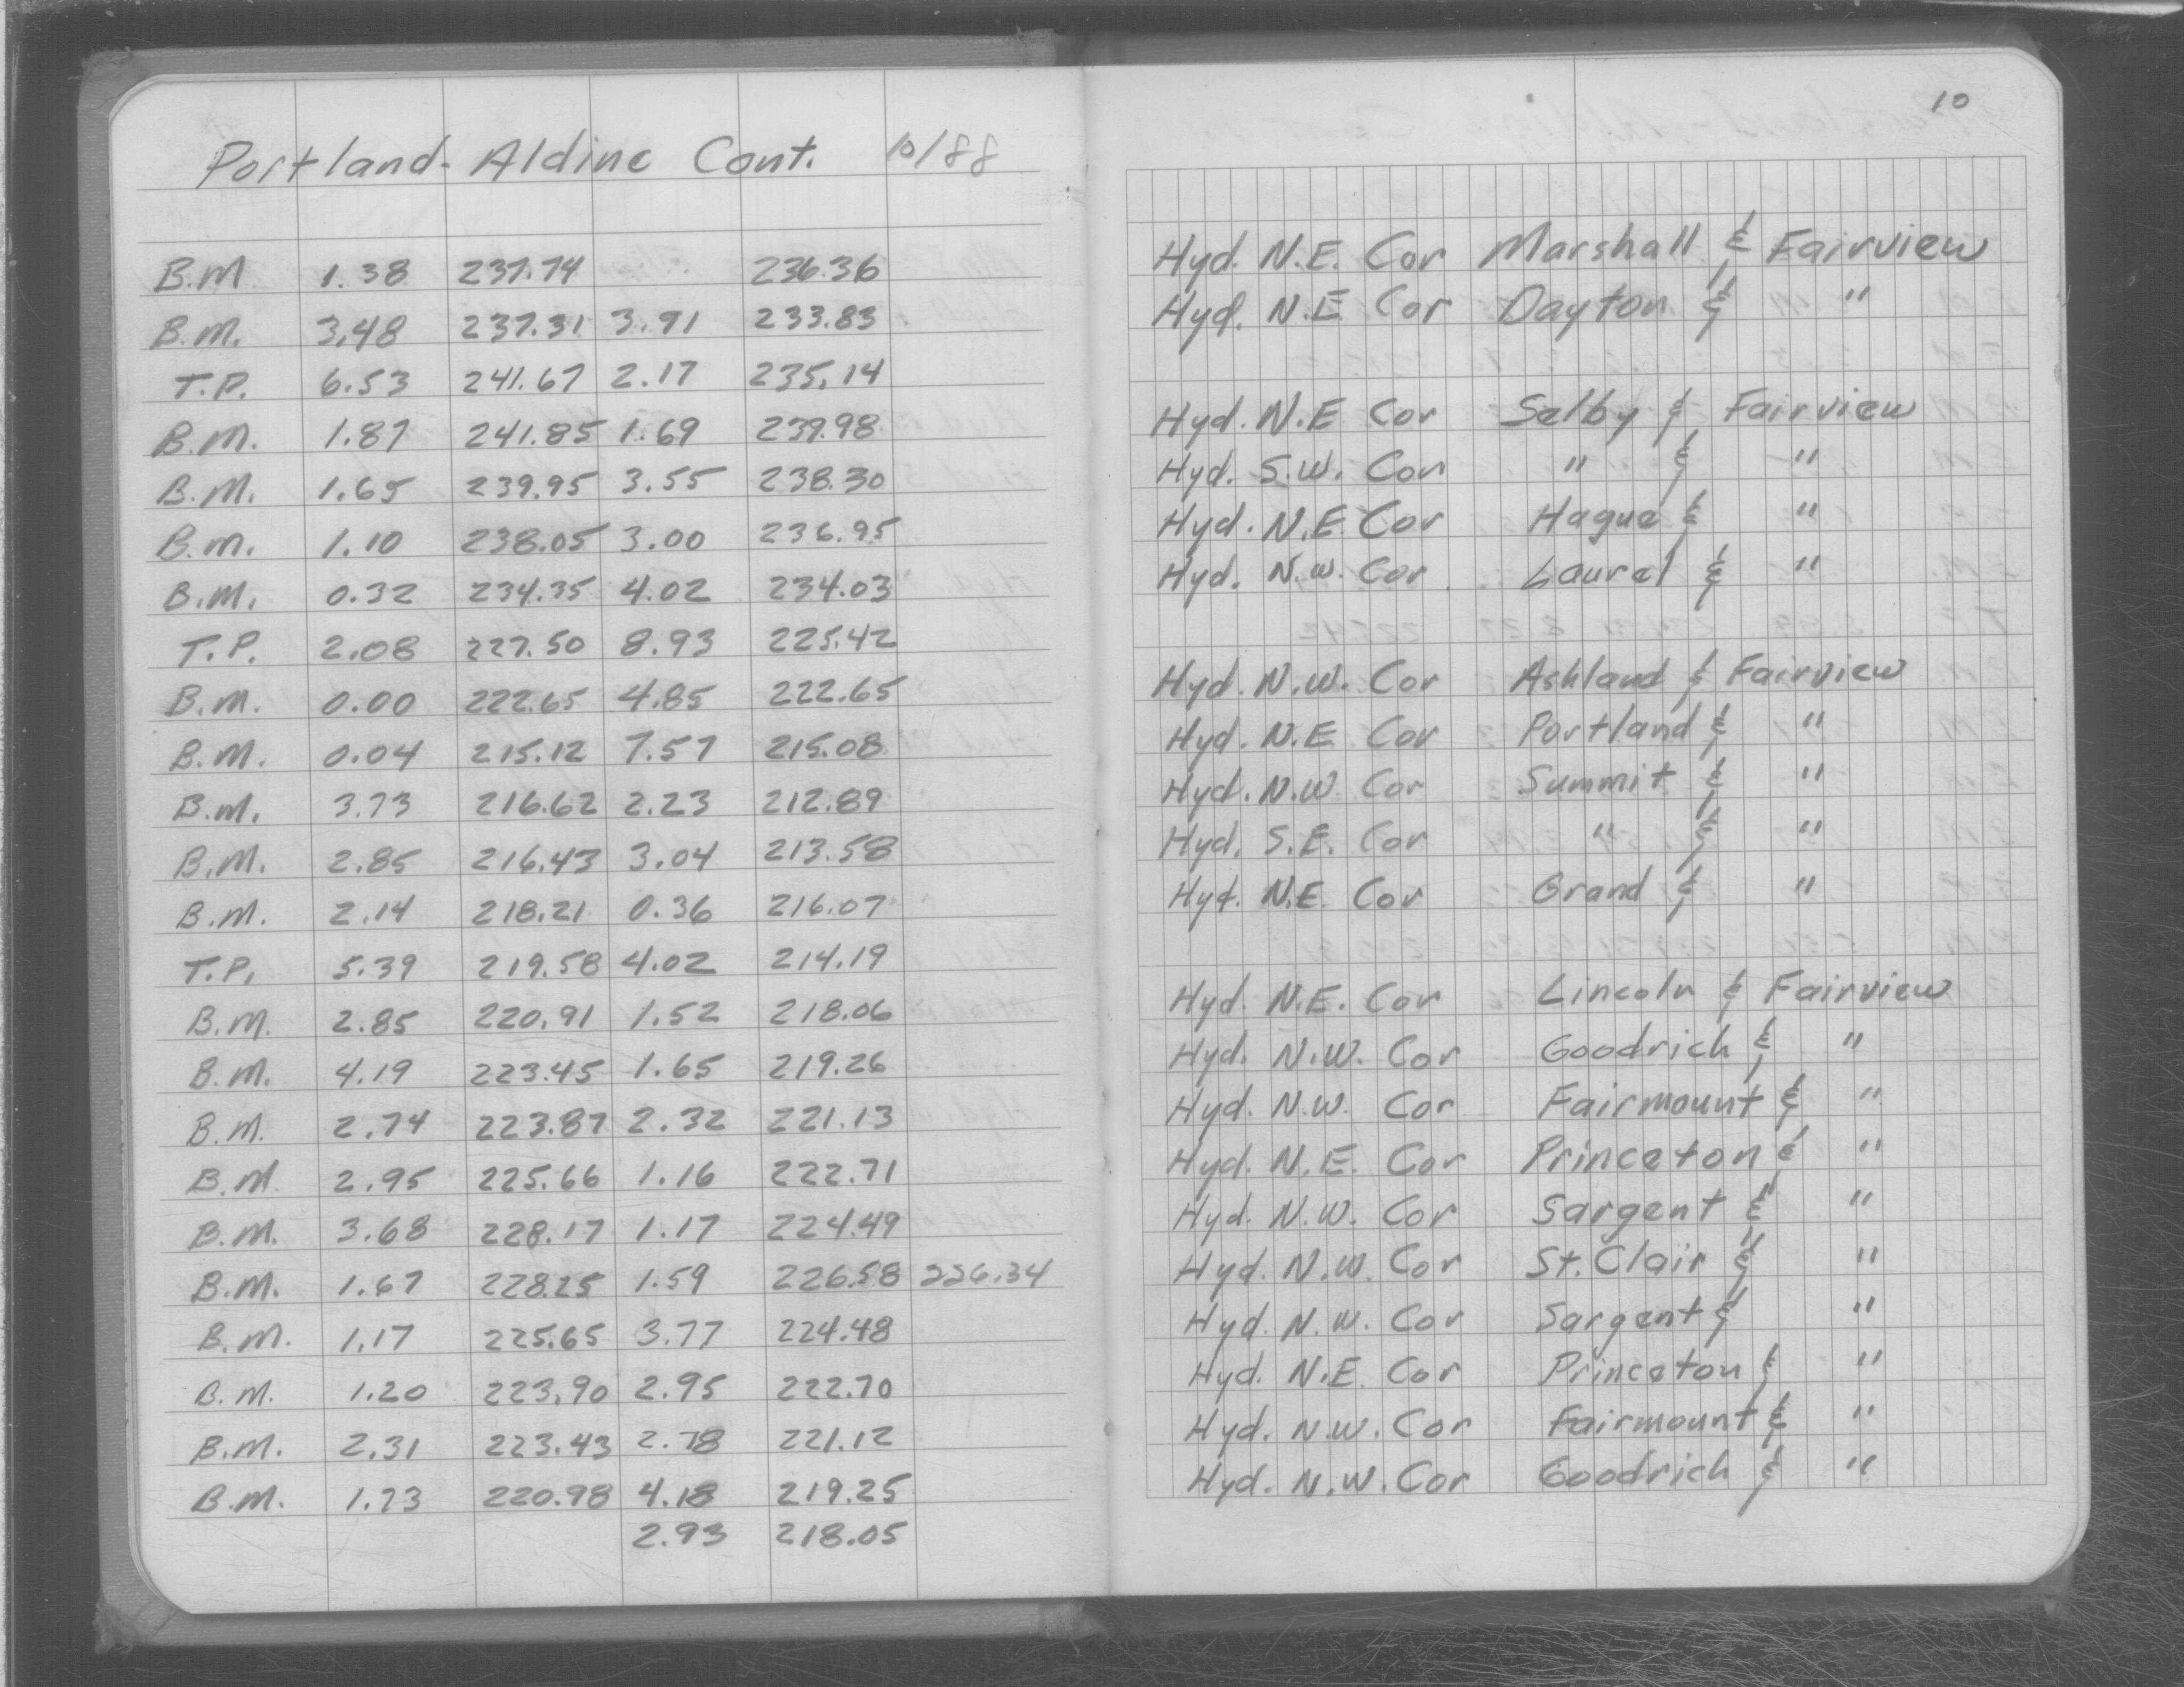 Portland-Aldine Cont. 10/88
B.M 1.38 237.74 236.36
B.M. 3.48 237.31 3.91 233.83
T.P. 6.53 241.67 2.17 235.14
B.M. 1.87 241.85 1.69 239.98
B.M. 1.65 239.95 3.55 238.30
B.M. 1.10 238.05 3.00 236.95
B.M. 0.32 234.35 4.02 234.03
T.P. 2.08 227.50 8.93 225.42
B.M. 0.00 222.65 4.85 222.65
B.M. 0.04 215.12 7.57 215.08
B.M. 3.73 216.62 2.23 212.89
B.M. 2.85 216.43 3.04 213.58
B.M. 2.14 218.21 0.36 216.07
T.P. 5.39 219.58 4.02 214.19
B.M. 2.85 220.91 1.52 218.06
B.M. 4.19 223.45 1.65 219.26
B.M. 2.74 223.87 2.32 221.13
B.M. 2.95 225.66 1.16 222.71
B.M. 3.68 228.17 1.17 224.49
B.M. 1.67 228.25 1.59 226.58 226.34
B.M. 1.17 225.65 3.77 224.48
B.M. 1.20 223.90 2.95 222.70
B.M. 2.31 223.43 2.78 221.12
B.M. 1.73 220.98 4.18 219.25
2.93 218.05
10
Hyd. N.E. Cor Marshall & Fairview
Hyd. N.E. Cor Dayton & "
Hyd. N.E Cor Selby & Fairview
Hyd. S.W. Cor " & "
Hyd. N.E Cor Hague & "
Hyd. N.W. Cor Laurel & "
Hyd. N.W. Cor Ashland & Fairview
Hyd. N.E. Cor Portland & "
Hyd. N.W. Cor Summit & "
Hyd. S.E. Cor " & "
Hyd. N.E. Cor Grand & "
Hyd. N.E. Cor Lincoln & Fairview
Hyd. N.W. Cor Goodrich & "
Hyd. N.W. Cor Fairmount & "
Hyd. N.E. Cor Princeton & "
Hyd. N.W. Cor Sargent & "
Hyd. N.W. Cor St. Clair & "
Hyd. N.W. Cor Sargent & "
Hyd. N.E. Cor Princeton & "
Hyd. N.W. Cor Fairmount & "
Hyd. N.W. Cor Goodrich & "